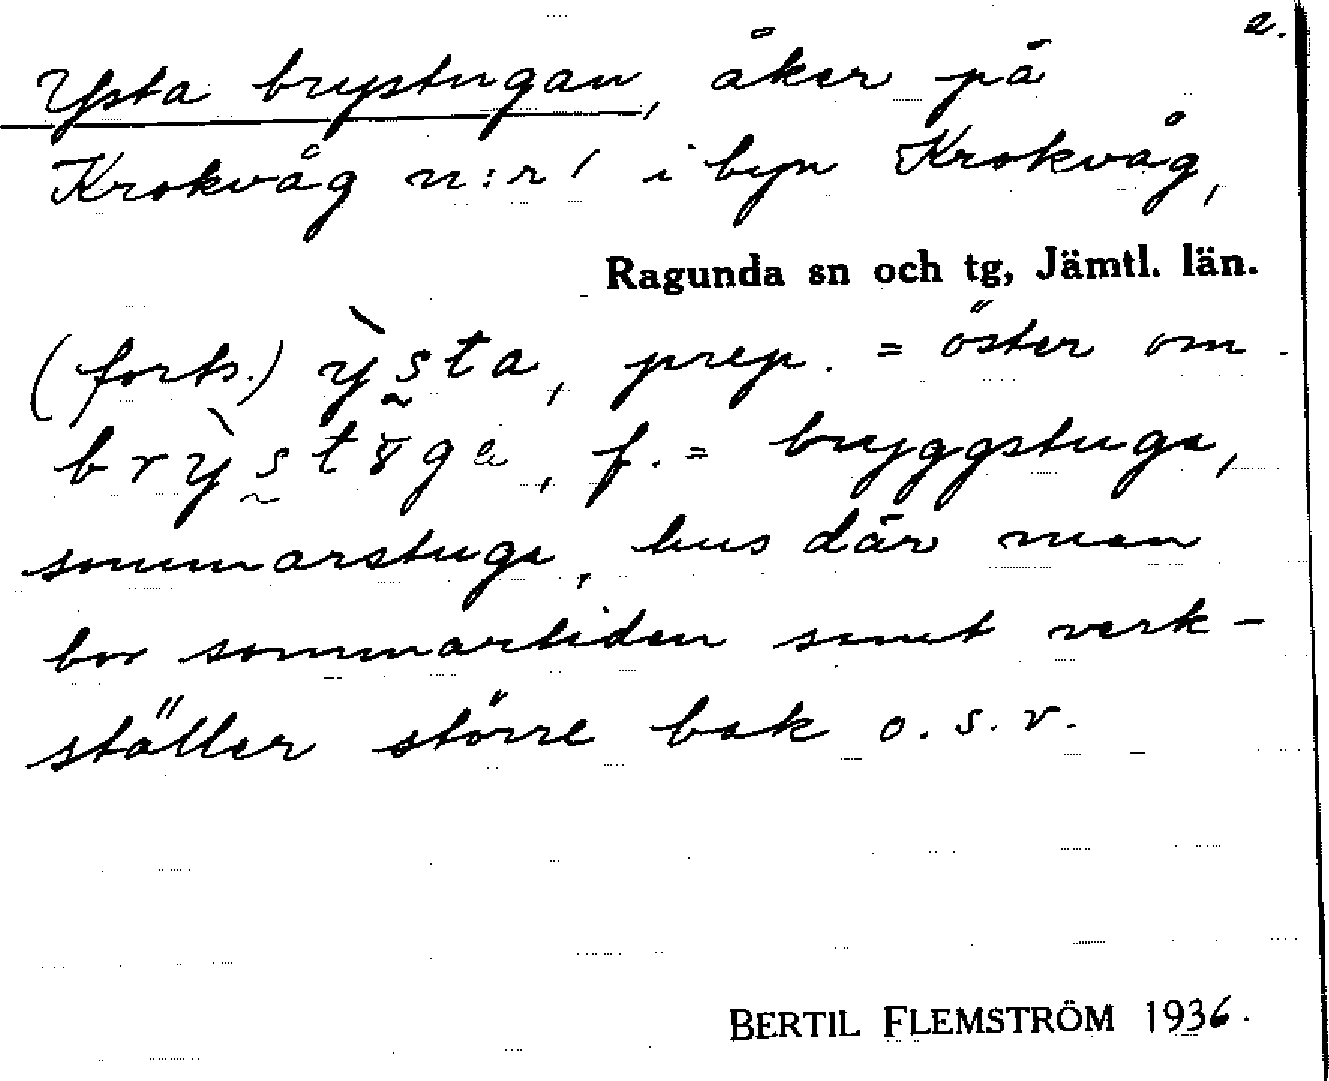 2.
Ysta brystugan, åker på
Krokvåg n:r 1 i byn Krokvåg,
Ragunda sn och tg, Jämtl. län.
(forts.) ỳsta, prep. = öster om
brỳstöga, f. = bryggstuga,
sommarstuga, hus där man
bor sommartiden samt verk-
ställer större bak o.s.v.
BERTIL FLEMSTRÖM 1936.